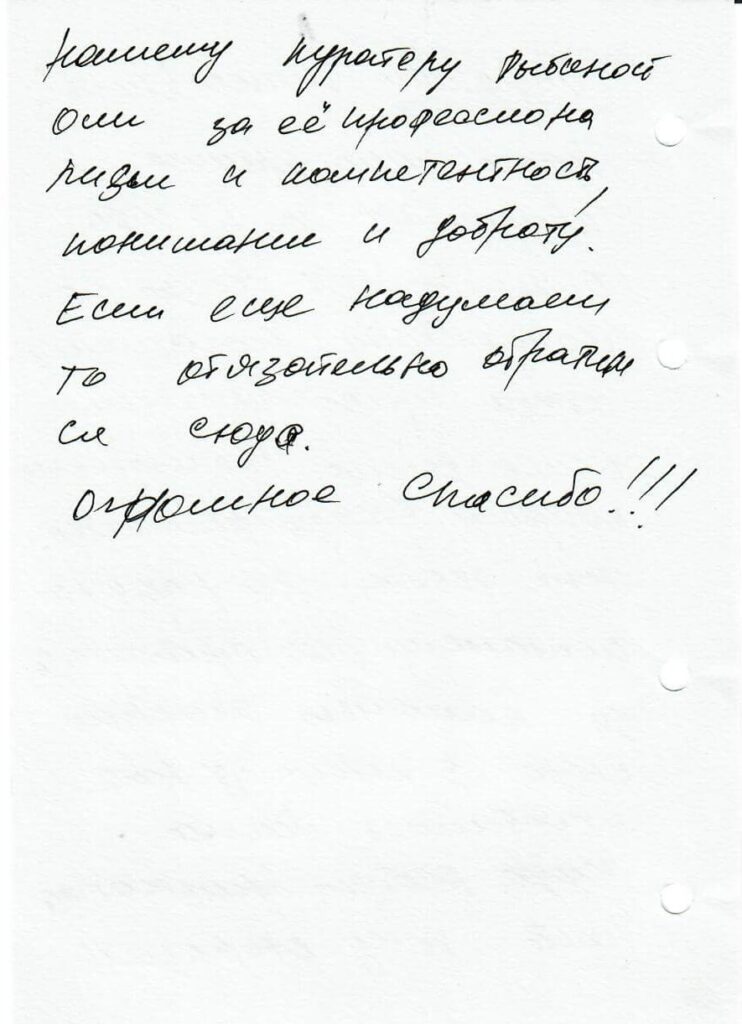 нашему куратеру Рыбеной
Оли за её професиона
лизм и компетентность,
понимание и доброту.
Если еще надумаем
то обязательно обратим
ся сюда.
Огромное спасибо!!!